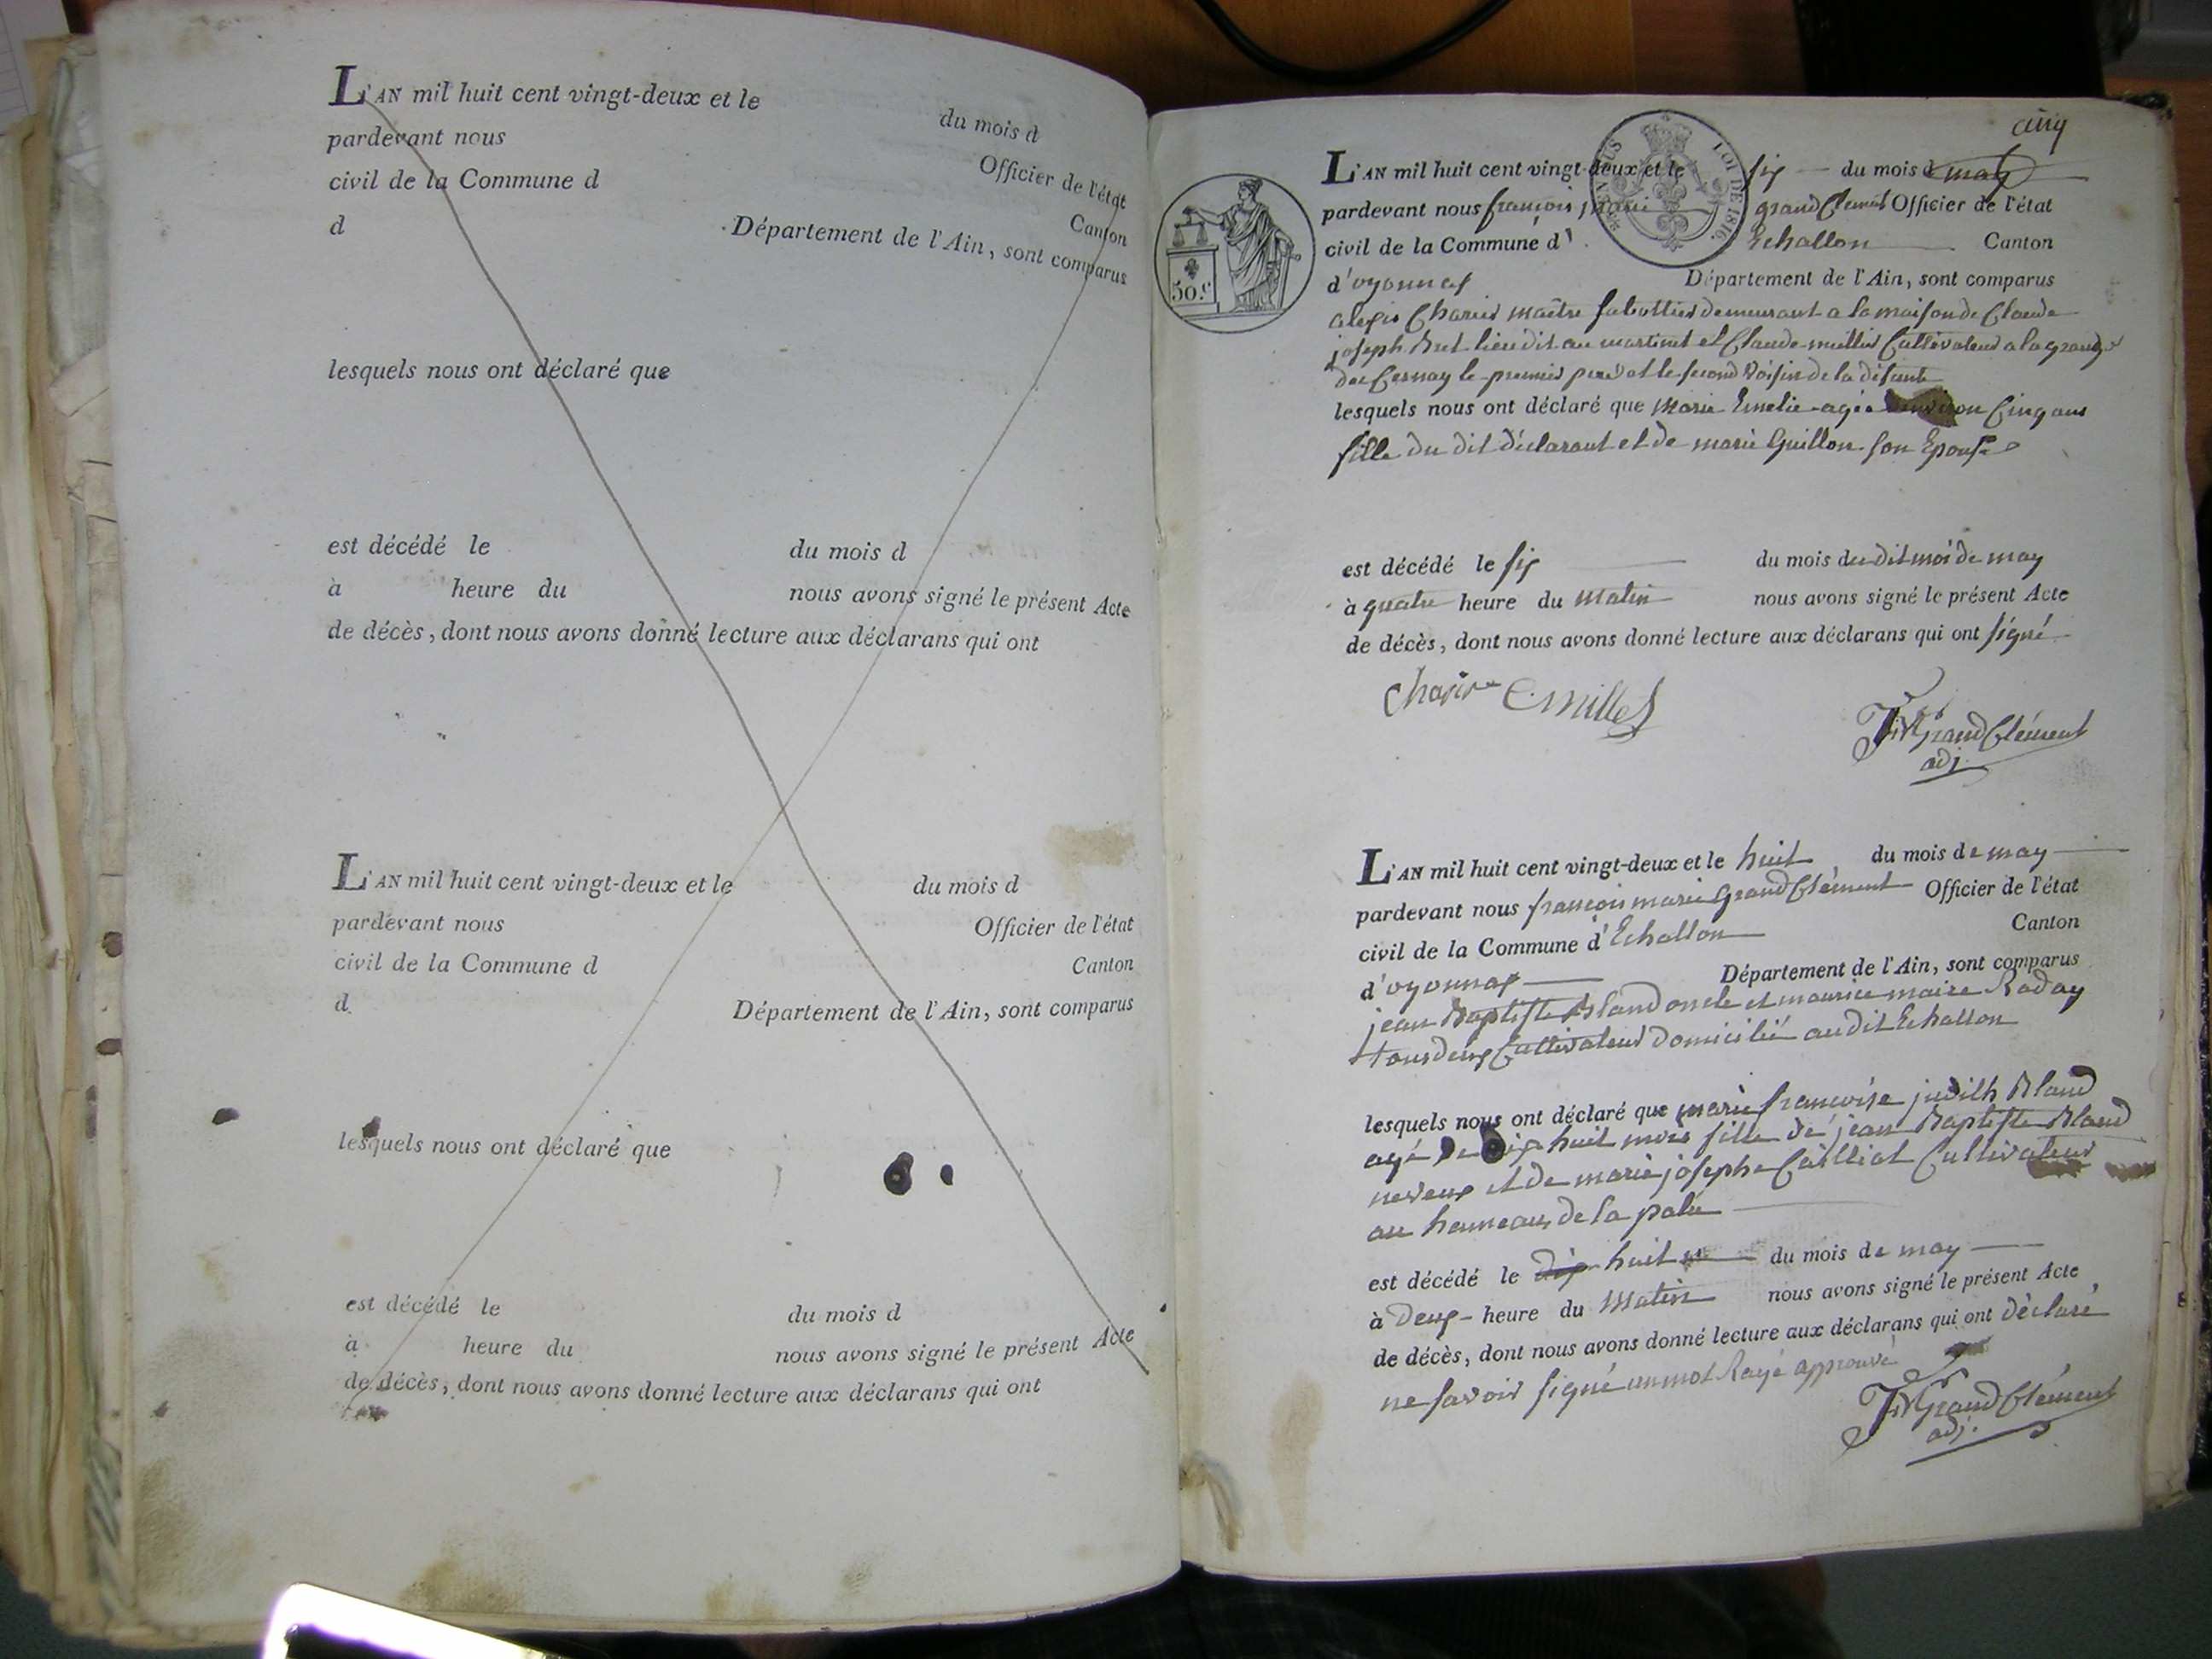 L'AN mil huit cent vingt-deux et le du mois d
pardevant nous Officier de l'état
civil de la Commune d Canton
d Département de l'Ain, sont comparus
lesquels nous ont déclaré que
est décédé le du mois d
à heure du nous avons signé le présent Acte
de décès, dont nous avons donné lecture aux déclarans qui ont
L'AN mil huit cent vingt-deux et le du mois d
pardevant nous Officier de l'état
civil de la Commune d Canton
d Département de l'Ain, sont comparus
lesquels nous ont déclaré que
est décédé le du mois d
à heure du nous avons signé le présent Acte
de décès, dont nous avons donné lecture aux déclarans qui ont
cinq
LOI DE 1816
50.c
L'AN mil huit cent vingt-deux et le six du mois d may
pardevant nous françois marie grandClément Officier de l'état
civil de la Commune d' Echallon Canton
d'oyonnax Département de l'Ain, sont comparus
alexis Charier maître sabottier demeurant a la maison de Claude
joseph Bret lieu dit au martinet et Claude millet Cultivateur a la grange
du Cernay le premier pere et le second voisin de la défunte
lesquels nous ont déclaré que Marie Emelie agée d'environ Cinq ans
fille du dit déclarant et de marie Guillon son Epouse
est décédé le six du mois du dit moi de may
à quatre heure du Matin nous avons signé le présent Acte
de décès, dont nous avons donné lecture aux déclarans qui ont signé
Charier C millet
GrandClément
adj.
L'AN mil huit cent vingt-deux et le huit du mois de may
pardevant nous françois marie GrandClément Officier de l'état
civil de la Commune d'Echallon Canton
d'oyonnax Département de l'Ain, sont comparus
jean Baptiste Bland oncle et maurice maire Raday
tous deux Cultivateur domicilié au dit Echallon
lesquels nous ont déclaré que marie françoise judith Bland
agé de dix huit mois fille de jean Baptiste Bland
neveux et de marie josephe Cailliat Cultivateur
au hameaux de la palu
est décédé le dix huit du mois de may
à Deux heure du Matin nous avons signé le présent Acte
de décès, dont nous avons donné lecture aux déclarans qui ont déclaré
ne savoir signé un mot Rayé approuvé
GrandClément
adj.